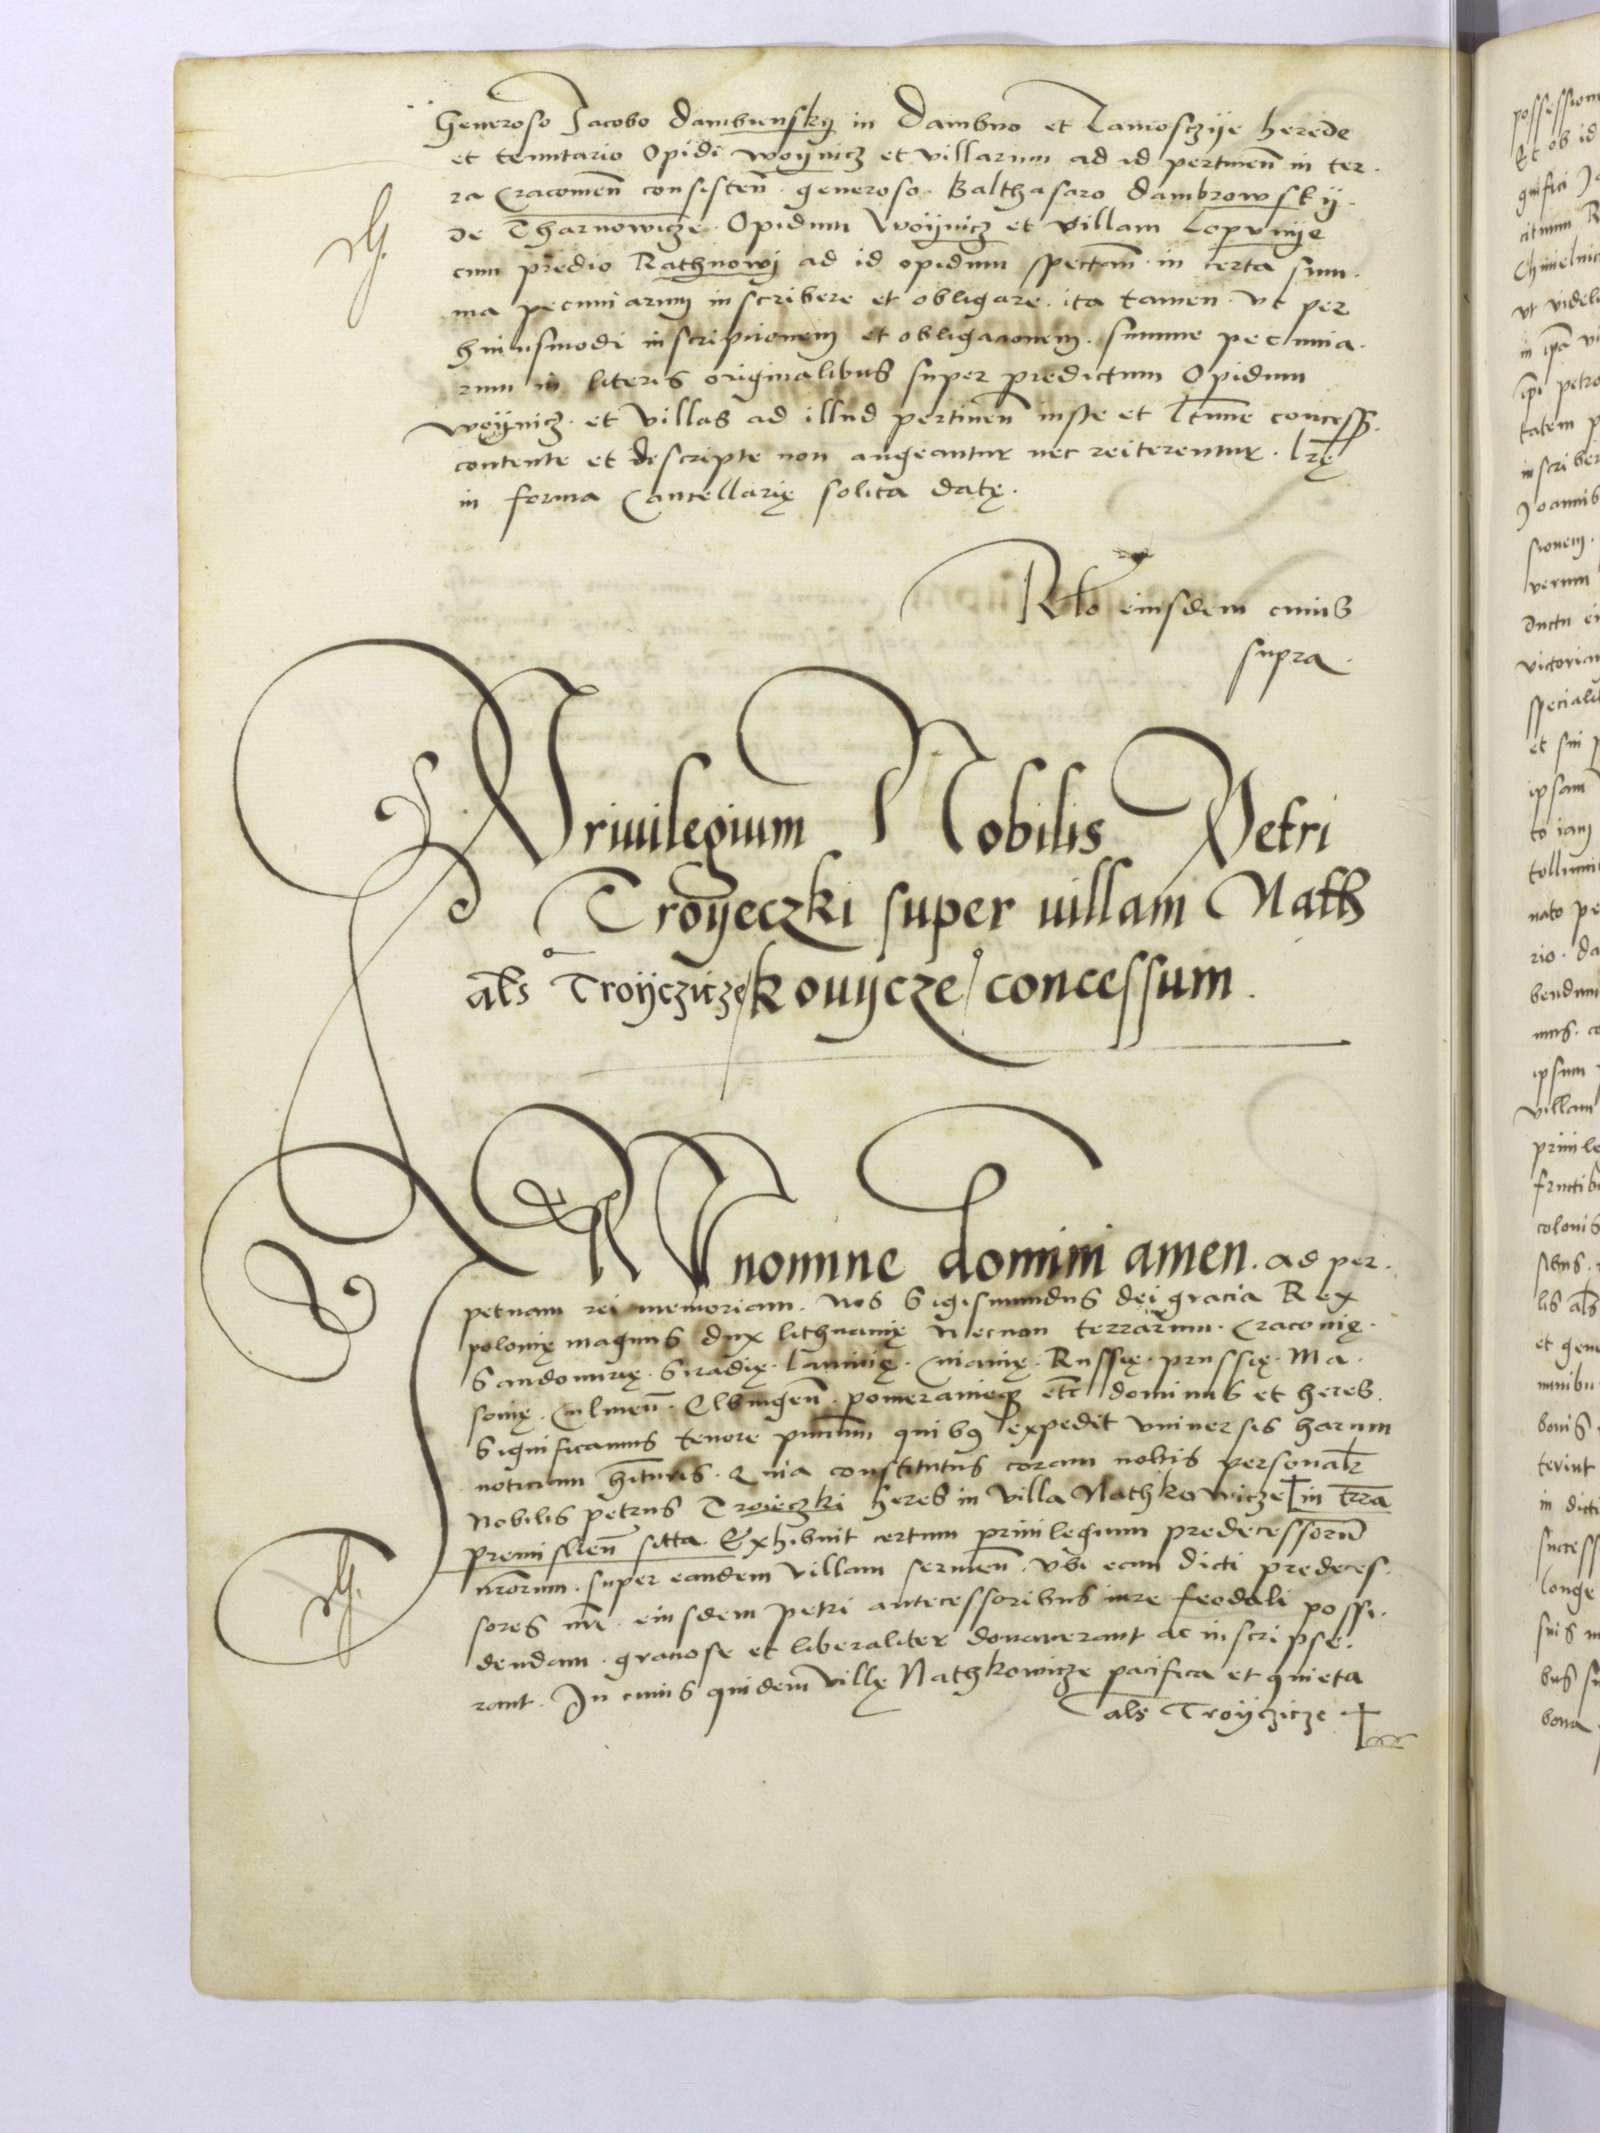 Generoso Jacobo dambiensky in Dambno et Zamosczye herede
et tenutario Opidi woynicz et villarum ad id pertinen̄ in ter.
ra Cracouien̄ consisten̄. generoso. Balthasaro dambrowskij.
de Tharnowicze. Opidum woynicz et villam
cum predio Rathnowj ad id opidum spectan̄. in certa sum.
ma pecuniarum inscribere et obligare. ita tamen. vt per
huiusmodi inscriptionem et obligacionem. summe pecunia.
rum in literis originalibus super predictum Opidum
woynicz. et villas ad illud pertinen̄ iuste et concess.
contente et descripte non augeantur nec reiterentur. Lrę
in forma Cancellarię solita datę.
Rtō eiusdem cuius
supra.
Priuilegium Nobilis Petri
Troyeczki super uillam Nath
als Troycziczekouycze concessum.
IN nomine domini amen. ad per.
petuam rei memoriam. Nos Sigismundus dei gracia Rex
polonię magnus dux lithuanię Necnon terrarum. Cracouię.
Sandomirię. Siradię. Lancicię. Cuiauię. Russię. prussię. Ma.
souię. Culmen̄. Elbingen̄. pomeranieqȝ etc̄ dominus et heres.
Significamus tenore pn̄tium quibꝰ expedit vniuersis harum
noticiam hituris. Quia constitutus coram nobis personalr̄
Nobilis petrus Troieczki heres in villa Nathkowicze in trr̄a
premislien̄ sitta. Exhibuit certum priuilegium predecessorū
nr̄orum. super eandem villam seruien̄. vbi eam dicti predeces.
sores nr̄i. eiusdem petri antecessoribus iure feodali possi.
dendam. graciose et liberaliter donauerant ac inscripse.
rant. In cuius quidem villę Nathkowicze pacifica et quieta
als Troyczicze